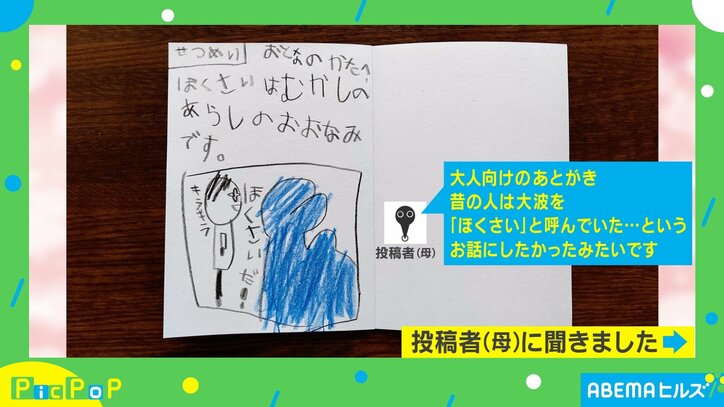 せつめい
おとなのかたへ
ほくさいはむかしの
あらしのおおなみ
です。
キラキラ
ほくさいだ!
大人向けのあとがき
昔の人は大波を
「ほくさい」と呼んでいた…という
お話にしたかったみたいです
投稿者(母)
投稿者(母)に聞きました
PicPoP
ABEMAヒルズ